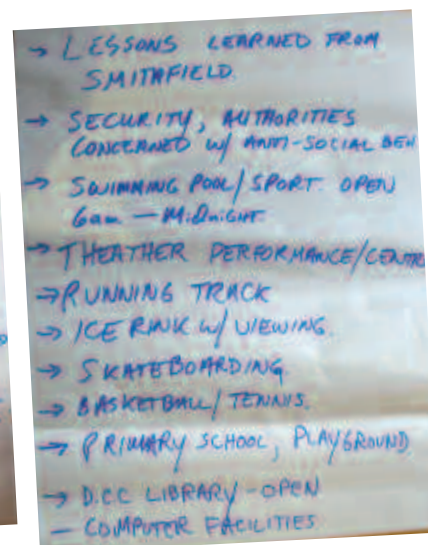 → LESSONS LEARNED FROM
SMITHFIELD.
→ SECURITY, AUTHORITIES
CONCERNED W/ ANTI-SOCIAL BEH
→ SWIMMING POOL/SPORT. OPEN
6am — MIDNIGHT
→ THEATHER PERFORMANCE/CENTR
→ RUNNING TRACK
→ ICE RINK W/ VIEWING.
→ SKATEBOARDING.
→ BASKETBALL/TENNIS.
→ PRIMARY SCHOOL, PLAYGROUND
→ D.C.C LIBRARY - OPEN
— COMPUTER FACILITIES